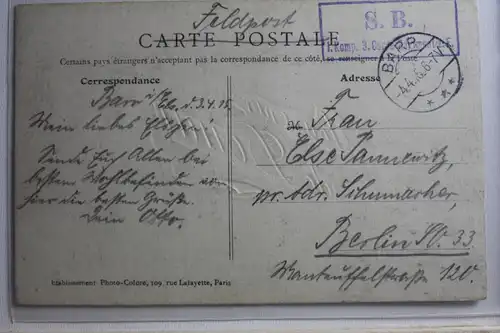 Feldpost
S. B.
CARTE POSTALE
Certains pays étrangers n'acceptent pas la correspondance de ce côté, se renseigner à la Poste
Correspondance
Adresse
BARR
4.4.15.6-7N
Barr i/Els. d. 3.4.15.
Mein liebes
Sende Euch Allen bei
bestem Wohlbefinden von
hier die besten Grüße.
Dein Otto.
Frau
Else Pannewitz,
pr. Adr. Schumacher,
Berlin SO. 33.
Manteuffelstraße 120.
Etablissement Photo-Colore, 109, rue Lafayette, Paris